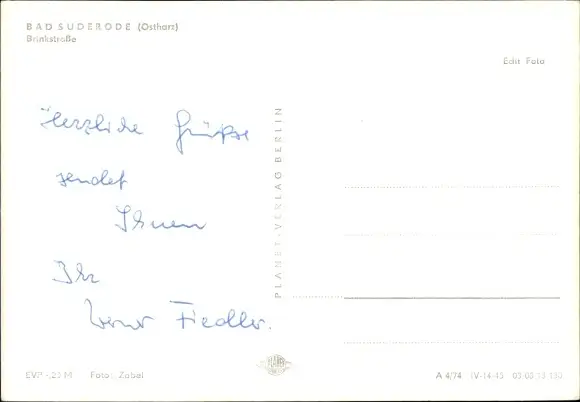 BAD SUDERODE (Ostharz)
Brinkstraße
Edit Foto
Herzliche Grüße
sendet
Ihnen
Ihr
Werner Fiedler.
PLANET-VERLAG BERLIN
EVP -,20 M Foto: Zabel
A 4/74 IV-14-45